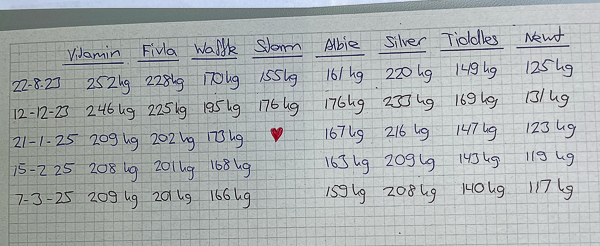 Vitamin Fivla Waffle Storm Albie Silver Tiddles Newt
22-8-23 252kg 228kg 170kg 155kg 161kg 220kg 149kg 125kg
12-12-23 246kg 225kg 195kg 176kg 176kg 233kg 169kg 131kg
21-1-25 209kg 202kg 173kg ♥ 167kg 216kg 147kg 123kg
15-2 25 208kg 201kg 168kg 163kg 209kg 143kg 119kg
7-3-25 209kg 201kg 166kg 159kg 208kg 140kg 117kg